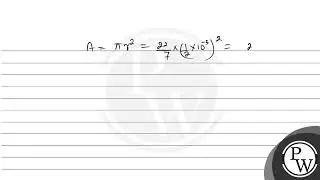 A = πr² = 22/7 × (1/2 × 10⁻³)² = 2
PW